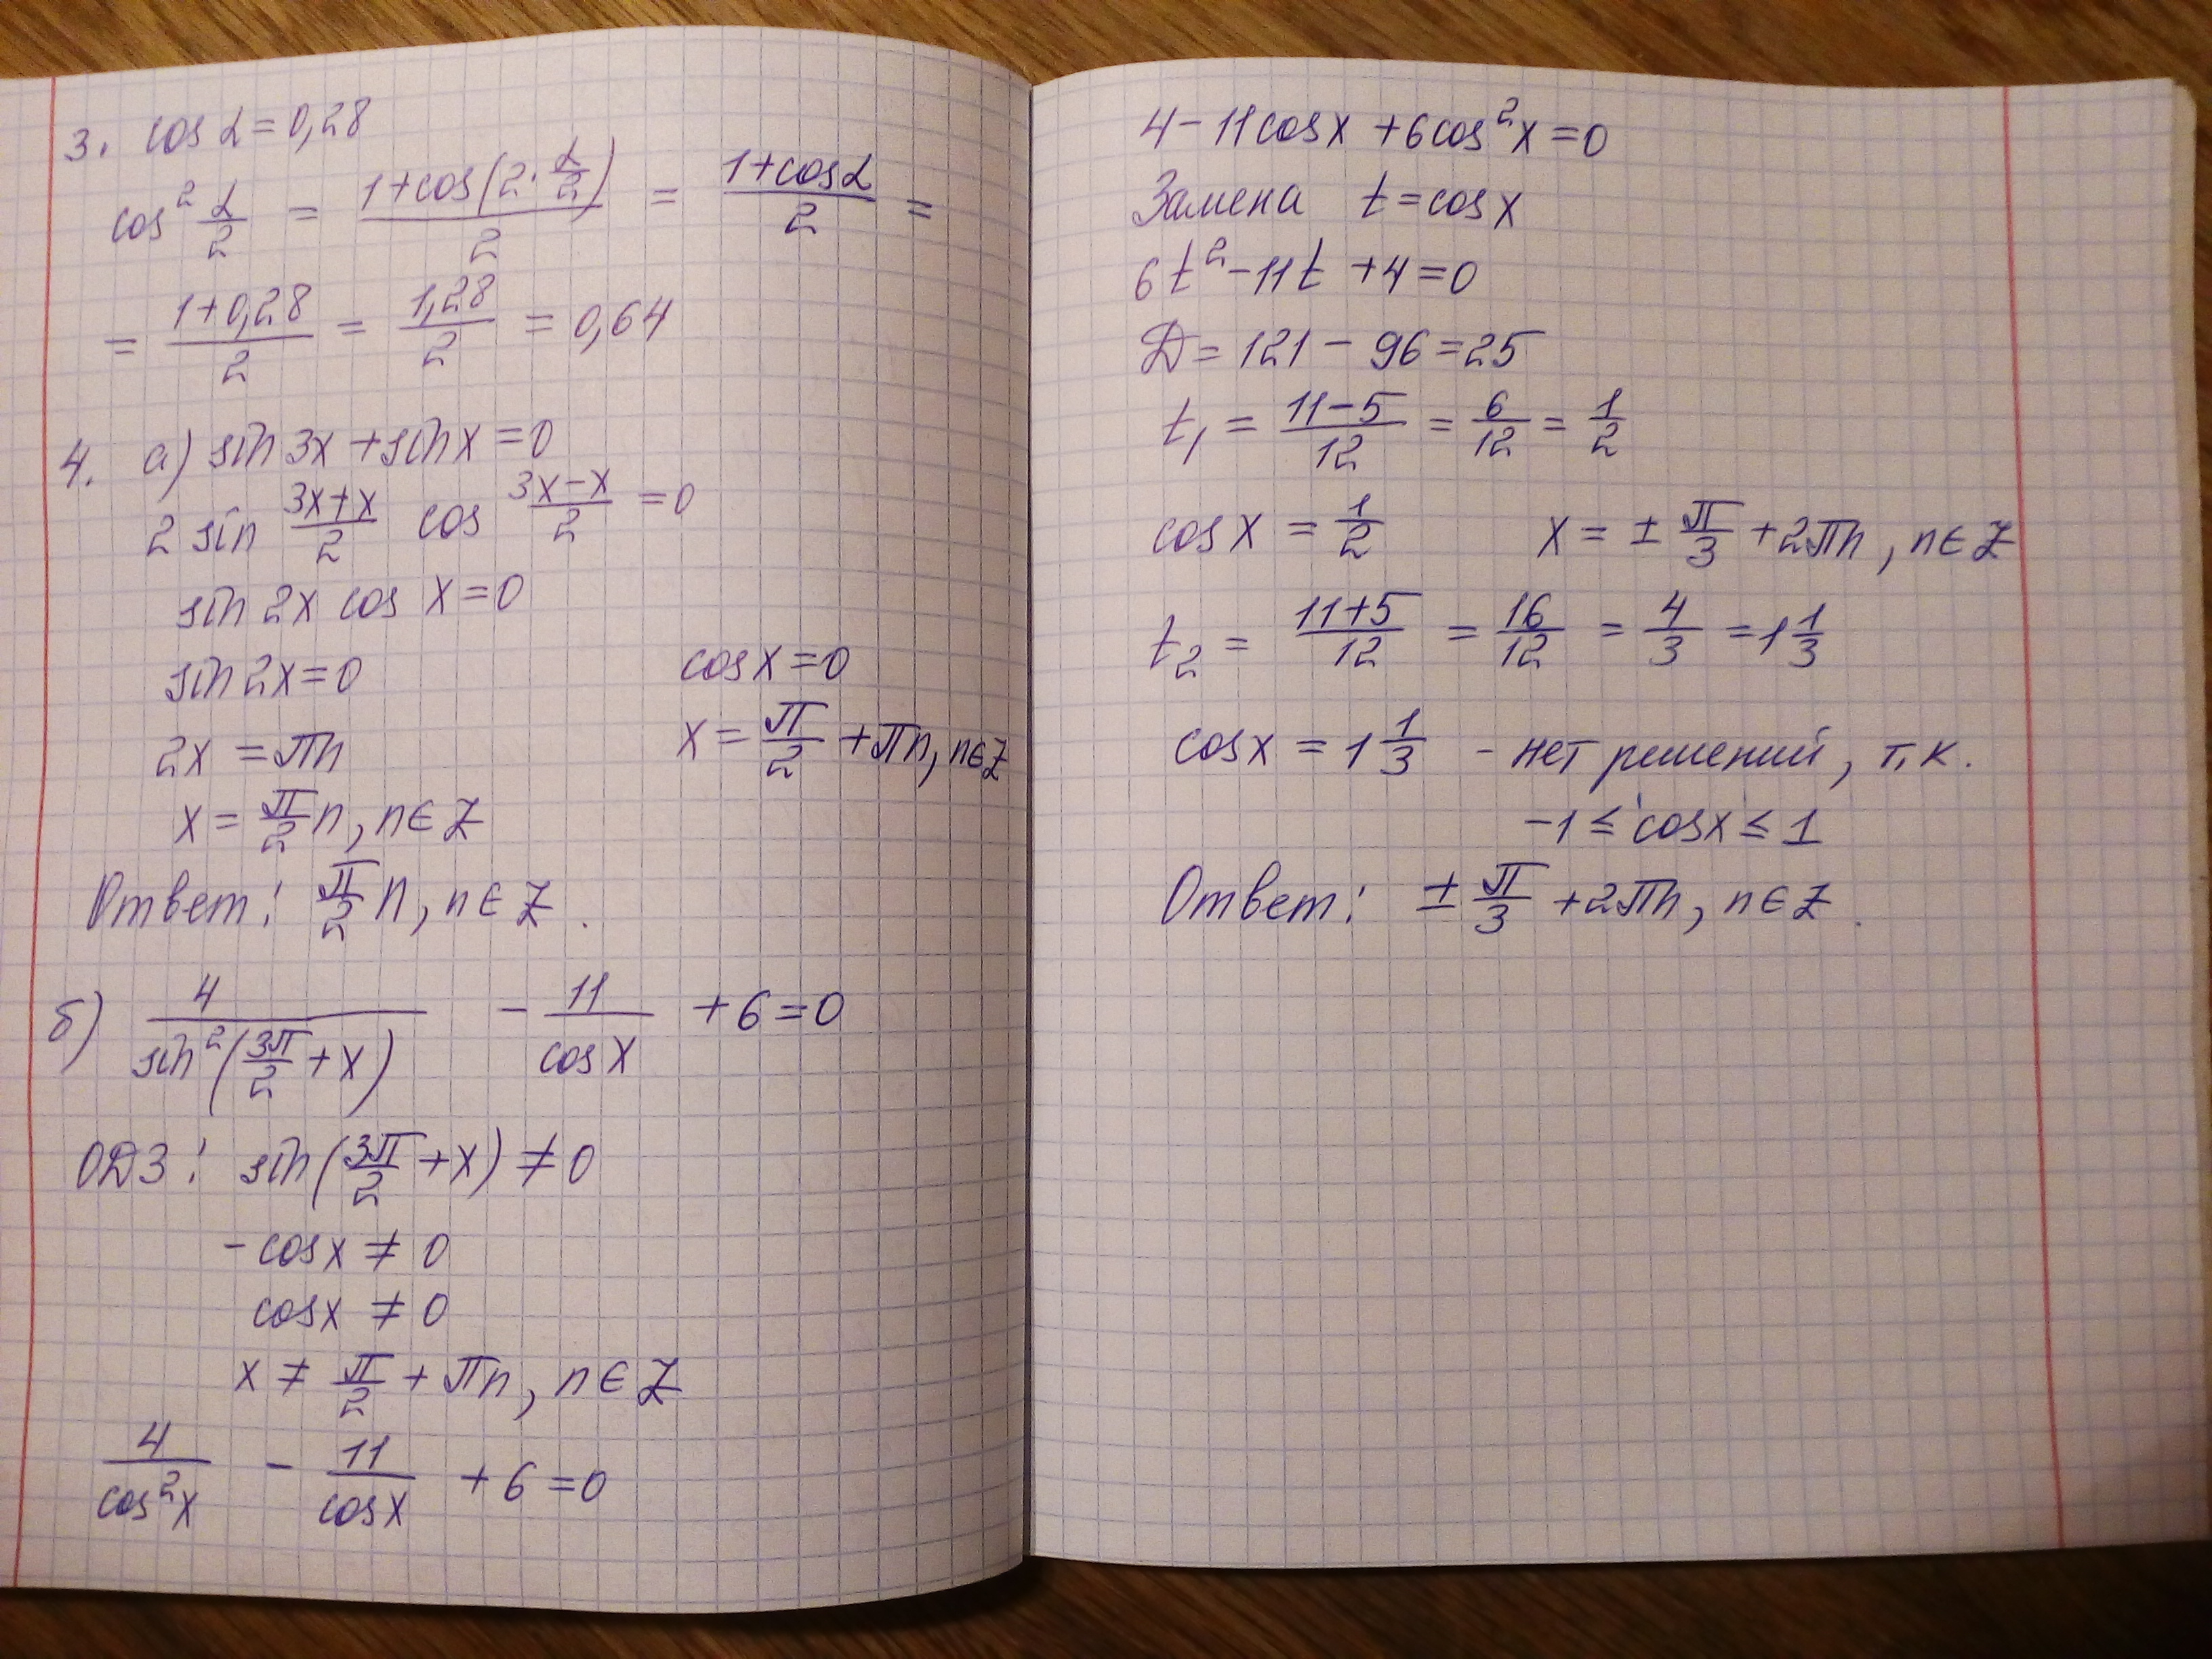 3. cos α = 0,28
cos² α/2 = (1+cos(2·α/2))/2 = (1+cosα)/2 =
= (1+0,28)/2 = 1,28/2 = 0,64
4. а) sin 3x + sin x = 0
2 sin (3x+x)/2 cos (3x−x)/2 = 0
sin 2x cos x = 0
sin 2x = 0 cos x = 0
2x = πn x = π/2 + πn, n∈Z
x = π/2 n, n∈Z
Ответ: π/2 n, n∈Z.
б) 4/sin²(3π/2 + x) − 11/cos x + 6 = 0
ОДЗ: sin(3π/2 + x) ≠ 0
−cos x ≠ 0
cos x ≠ 0
x ≠ π/2 + πn, n∈Z
4/cos²x − 11/cos x + 6 = 0
4 − 11cos x + 6cos²x = 0
Замена t = cos x
6t² − 11t + 4 = 0
D = 121 − 96 = 25
t₁ = (11−5)/12 = 6/12 = 1/2
cos x = 1/2 x = ± π/3 + 2πn, n∈Z
t₂ = (11+5)/12 = 16/12 = 4/3 = 1 1/3
cos x = 1 1/3 − нет решений, т.к.
−1 ≤ cos x ≤ 1
Ответ: ± π/3 + 2πn, n∈Z.